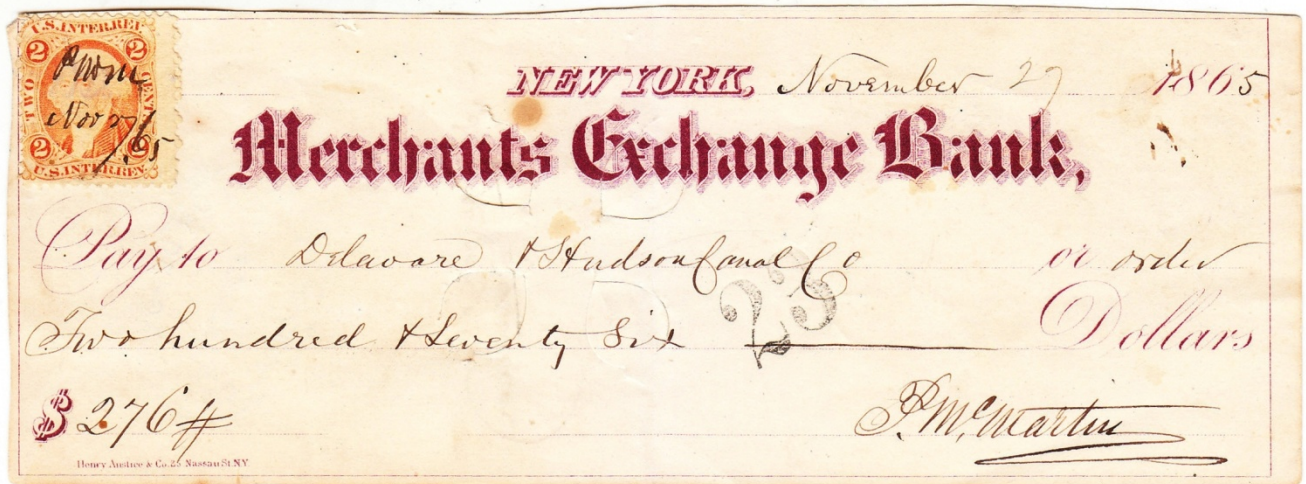 U.S. INTER. REV.
2 2
TWO CENTS
PMcM
Nov 27/65
2 2
U.S. INTER. REV.
NEW YORK, November 27 1865
Merchants Exchange Bank,
Pay to Delaware & Hudson Canal Co or order
Two hundred & Seventy Six Dollars
23
$ 276 #
P. McMartin
Henry Anstice & Co. 25 Nassau St. N.Y.